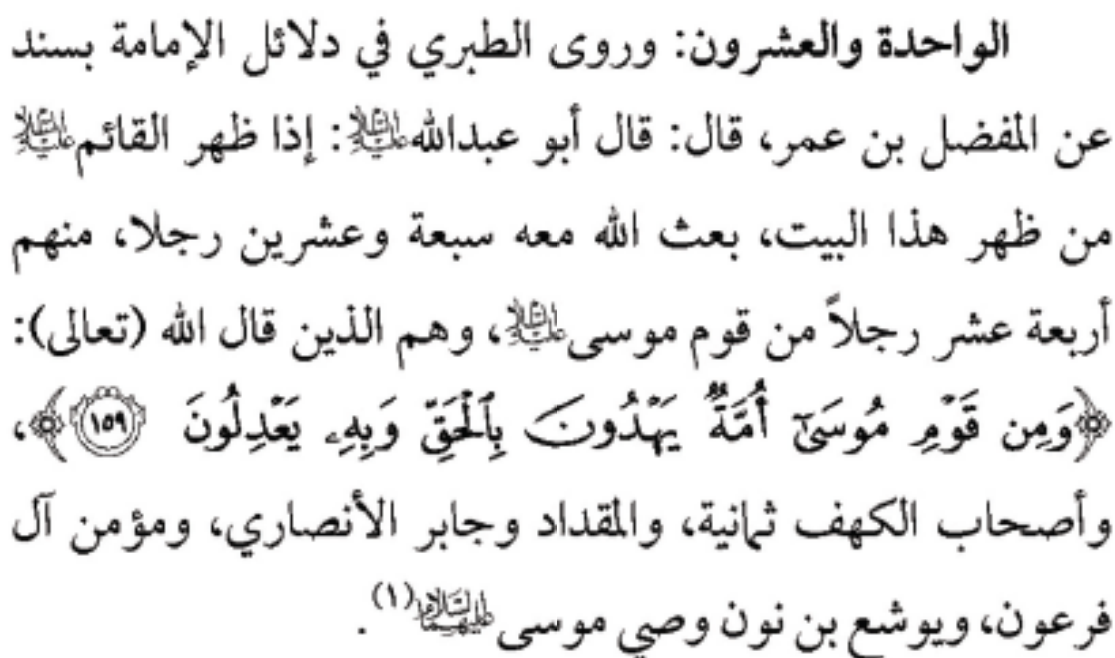 الواحدة والعشرون: وروى الطبري في دلائل الإمامة بسند
عن المفضل بن عمر، قال: قال أبو عبدالله عليه السلام: إذا ظهر القائم عليه السلام
من ظهر هذا البيت، بعث الله معه سبعة وعشرين رجلا، منهم
أربعة عشر رجلاً من قوم موسى عليه السلام، وهم الذين قال الله (تعالى):
﴿وَمِن قَوْمِ مُوسَىٰٓ أُمَّةٌ يَهْدُونَ بِٱلْحَقِّ وَبِهِۦ يَعْدِلُونَ ١٥٩﴾،
وأصحاب الكهف ثمانية، والمقداد وجابر الأنصاري، ومؤمن آل
فرعون، ويوشع بن نون وصي موسى عليهما السلام(١).